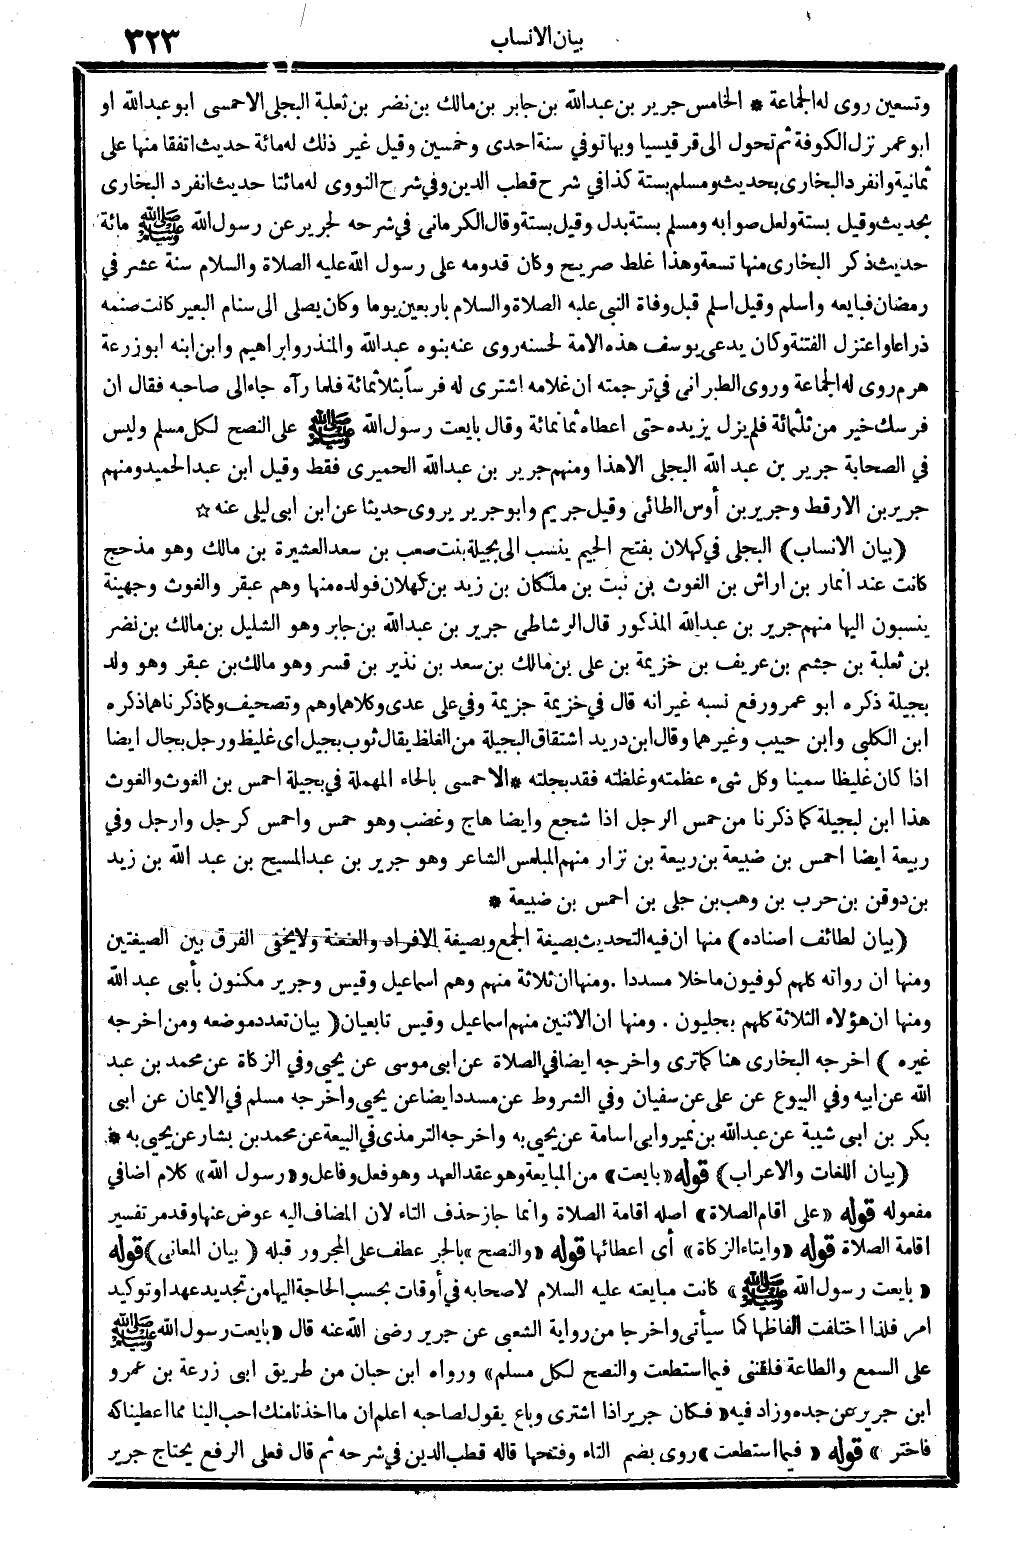 بيان الانساب ٣٢٣
وتسعين روى له الجماعة * الخامس جرير بن عبدالله بن جابر بن مالك بن نضر بن ثعلبة البجلى الاحمسى ابو عبدالله او
ابو عمر نزل الكوفة ثم تحول الى قرقيسيا وبها توفي سنة احدى وخمسين وقيل غير ذلك له مائة حديث اتفقا منها على
ثمانية وانفرد البخارى بحديث ومسلم بستة كذا في شرح قطب الدين وفي شرح النووى له مائتا حديث انفرد البخارى
بحديث وقيل بستة ولعل صوابه ومسلم بستة بدل وقيل بستة وقال الكرمانى في شرحه لجرير عن رسول الله ﷺ مائة
حديث ذكر البخارى منها تسعة وهذا غلط صريح وكان قدومه على رسول الله عليه الصلاة والسلام سنة عشر في
رمضان فبايعه وأسلم وقيل اسلم قبل وفاة النبى عليه الصلاة والسلام باربعين يوما وكان يصلى الى سنام البعير كانت صنمه
ذراعا واعتزل الفتنة وكان يدعى يوسف هذه الامة لحسنه روى عنه بنوه عبدالله والمنذر وابراهيم وابن ابنه ابو زرعة
هرم روى له الجماعة وروى الطبرانى في ترجمته ان غلامه اشترى له فرساً بثلاثمائة فلما رآه جاء الى صاحبه فقال ان
فرسك خير من ثلثمائة فلم يزل يزيده حتى اعطاه ثمانمائة وقال بايعت رسول الله ﷺ على النصح لكل مسلم وليس
في الصحابة جرير بن عبد الله البجلى الا هذا ومنهم جرير بن عبدالله الحميرى فقط وقيل ابن عبد الحميد ومنهم
جرير بن الارقط وجرير بن أوس الطائى وقيل جريم وابو جرير يروى حديثا عن ابن ابى ليلى عنه ☆
(بيان الانساب) البجلى في كهلان بفتح الجيم ينسب الى بجيلة بنت صعب بن سعد العشيرة بن مالك وهو مذحج
كانت عند انمار بن اراش بن الغوث بن نبت بن ملكان بن زيد بن كهلان فولده منها وهم عبقر والغوث وجهينة
ينسبون اليها منهم جرير بن عبدالله المذكور قال الرشاطى جرير بن عبدالله بن جابر وهو الشليل بن مالك بن نضر
بن ثعلبة بن جشم بن عريف بن خزيمة بن على بن مالك بن سعد بن نذير بن قسر وهو مالك بن عبقر وهو ولد
بجيلة ذكره ابو عمرو رفع نسبه غير انه قال في خزيمة جزيمة وفي على عدى وكلاهما وهم وتصحيف وكما ذكرناهما ذكره
ابن الكلبى وابن حبيب وغيرهما وقال ابن دريد اشتقاق البجيلة من الغلظ يقال ثوب بجيل اى غليظ ورجل بجال ايضا
اذا كان غليظا سمينا وكل شىء عظمته وغلظته فقد بجلته *الاحمسى بالحاء المهملة في بجيلة احمس بن الغوث والغوث
هذا ابن لبجيلة كما ذكرنا من حمس الرجل اذا شجع وايضا هاج وغضب وهو حمس واحمس كرجل وارجل وفي
ربيعة ايضا احمس بن ضبيعة بن ربيعة بن نزار منهم المتلمس الشاعر وهو جرير بن عبدالمسيح بن عبد الله بن زيد
بن دوقن بن حرب بن وهب بن جلى بن احمس بن ضبيعة *
(بيان لطائف اسناده) منها ان فيه التحديث بصيغة الجمع وبصيغة الافراد والعنعنة ولا يخفى الفرق بين الصيغتين
ومنها ان رواته كلهم كوفيون ما خلا مسددا . ومنها ان ثلاثة منهم وهم اسماعيل وقيس وجرير مكنون بأبى عبد الله
ومنها ان هؤلاء الثلاثة كلهم بجليون . ومنها ان الاثنين منهم اسماعيل وقيس تابعيان ( بيان تعدد موضعه ومن اخرجه
غيره ) اخرجه البخارى هنا كما ترى واخرجه ايضا في الصلاة عن ابى موسى عن يحيى وفي الزكاة عن محمد بن عبد
الله عن ابيه وفي البيوع عن على عن سفيان وفي الشروط عن مسدد ايضا عن يحيى واخرجه مسلم في الايمان عن ابى
بكر بن ابى شيبة عن عبدالله بن نمير وابى اسامة عن يحيى به واخرجه الترمذى في البيعة عن محمد بن بشار عن يحيى به *
(بيان اللغات والاعراب) قوله «بايعت» من المبايعة وهو عقد العهد وهو فعل وفاعل و«رسول الله» كلام اضافي
مفعوله قوله «على اقام الصلاة» اصله اقامة الصلاة وانما جاز حذف التاء لان المضاف اليه عوض عنها وقد مر تفسير
اقامة الصلاة قوله «وايتاء الزكاة» أى اعطائها قوله «والنصح» بالجر عطف على المجرور قبله ( بيان المعانى ) قوله
« بايعت رسول الله ﷺ » كانت مبايعته عليه السلام لاصحابه في أوقات بحسب الحاجة اليها من تجديد عهد او توكيد
امر فلذا اختلفت الفاظها كما سيأتى واخرجا من رواية الشعبى عن جرير رضى الله عنه قال «بايعت رسول الله ﷺ
على السمع والطاعة فلقننى فيما استطعت والنصح لكل مسلم» ورواه ابن حبان من طريق ابى زرعة بن عمرو
ابن جرير عن جده وزاد فيه «فكان جرير اذا اشترى وباع يقول لصاحبه اعلم ان ما اخذنا منك احب الينا مما اعطيناكه
فاختر » قوله « فيما استطعت » روى بضم التاء وفتحها قاله قطب الدين في شرحه ثم قال فعلى الرفع يحتاج جرير